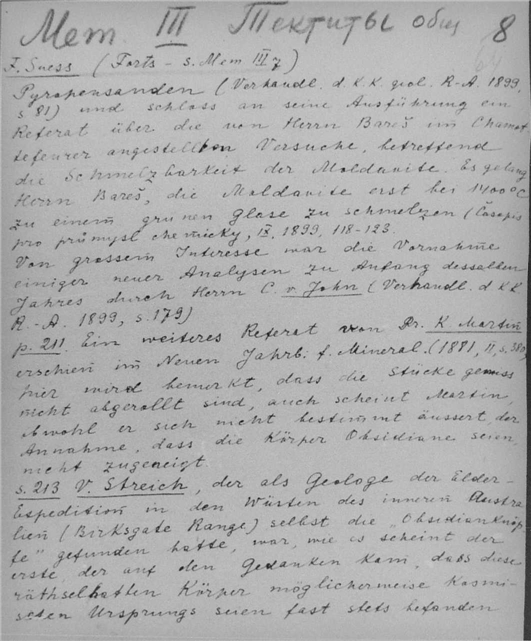 Мет. III Тектиты общ 8
F. Suess (Forts - s. Mem III 7)
Pyropensanden (Verhandl. d. K. K. geol. R.-A. 1899,
s 81) und schloss an seine Ausführung ein
Referat über die von Herrn Bareš im Chamot
tefeuer angestellten Versuche, betreffend
die Schmelzbarkeit der Moldavite. Es gelang
Herrn Bareš, die Moldavite erst bei 1400°C
zu einem grünen Glase zu schmelzen (Časopis
pro průmysl chemicky, IX. 1899, 118-123.
Von grossem Interesse war die Vornahme
einiger neuer Analysen zu Anfang desselben
Jahres durch Herrn C. v. John (Verhandl. d K K
R.-A. 1899, s. 179)
p. 211. Ein weiteres Referat von Dr. K. Martin
erschien im Neuen Jahrb. f. Mineral. (1881, II, s. 380,
hier wird bemerkt, dass die Stücke gewiss
nicht abgerollt sind, auch scheint Martin,
obwohl er sich nicht bestimmt äussert, der
Annahme, dass die Körper Obsidiane seien
nicht zugeneigt.
s. 213 V. Streich, der als Geologe der Elder-
Expedition in den Wüsten des inneren Austra
lien (Birksgate Range) selbst die „Obsidianknöp
fe" gefunden hatte, war, wie es scheint der
erste, der auf den Gedanken kam, dass diese
räthselhatten Körper möglicherweise Kosmi-
schen Ursprungs seien fast stets befanden